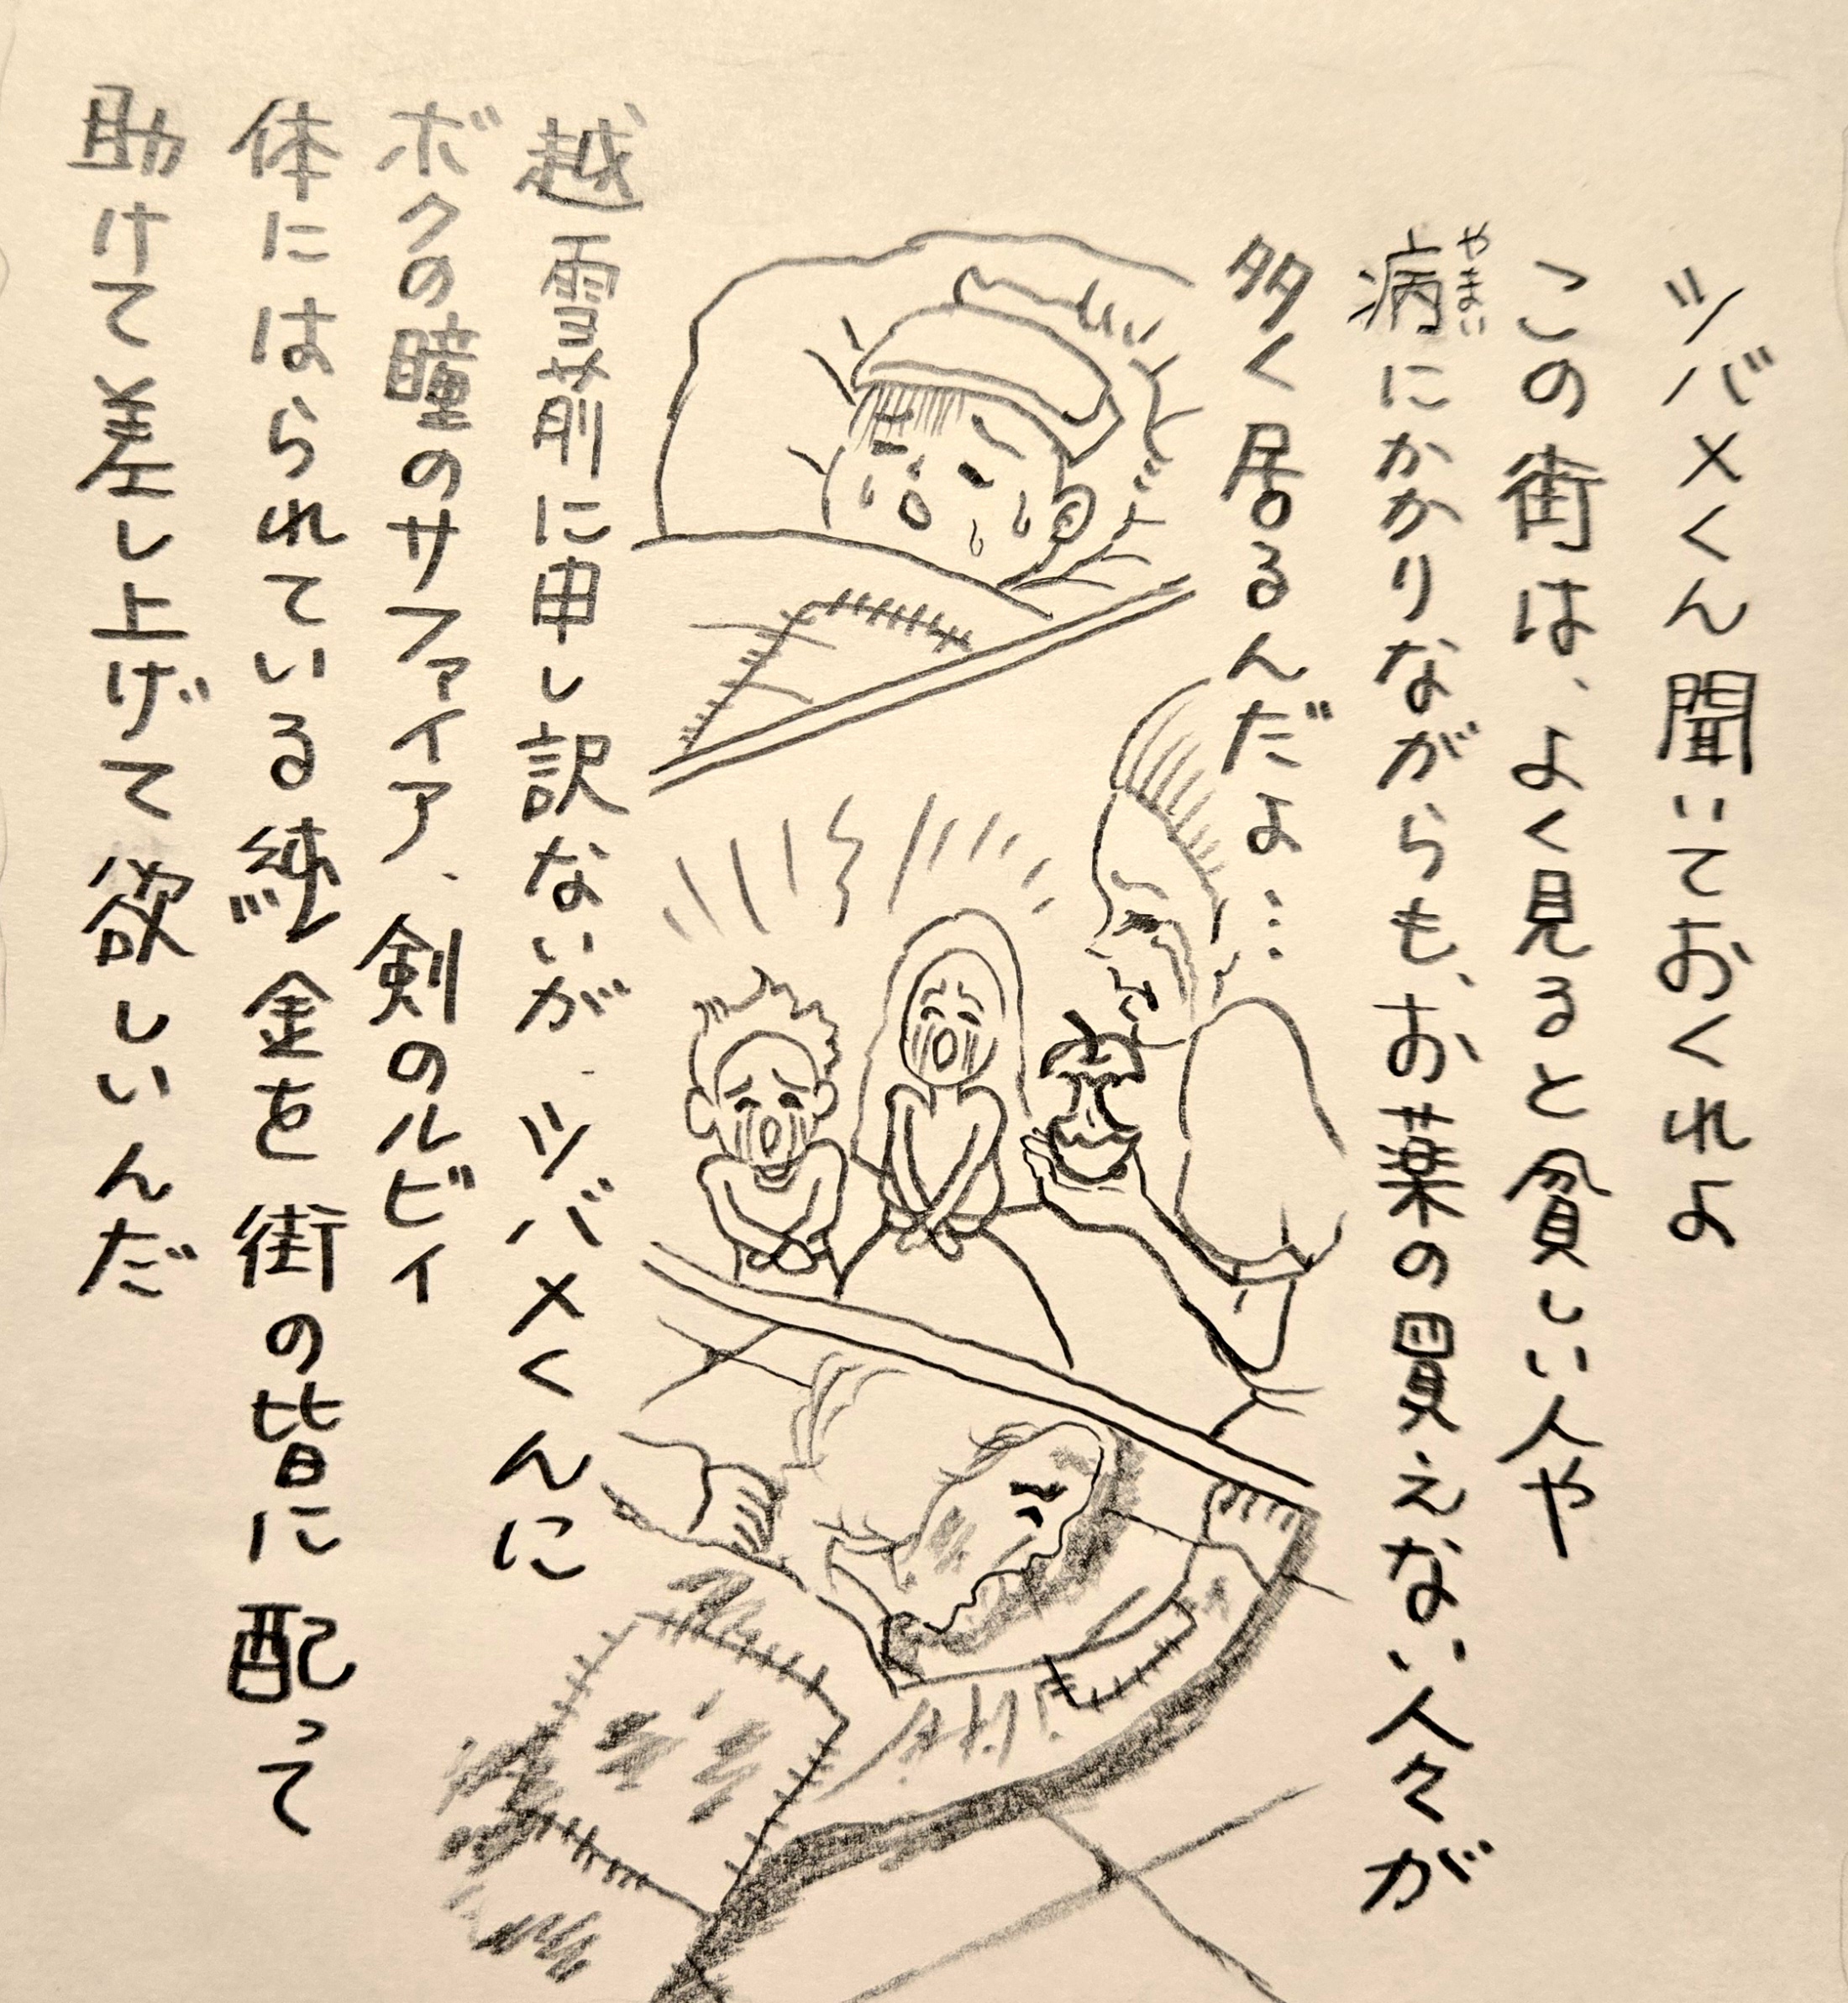 ツバメくん聞いておくれよ
この街は、よく見ると貧しい人や
病にかかりながらも、お薬の買えない人々が
やまい
多く居るんだよ…
越雪前に申し訳ないが、ツバメくんに
ボクの瞳のサファイア、剣のルビィ
体にはられている純金を街の皆に配って
助けて差し上げて欲しいんだ